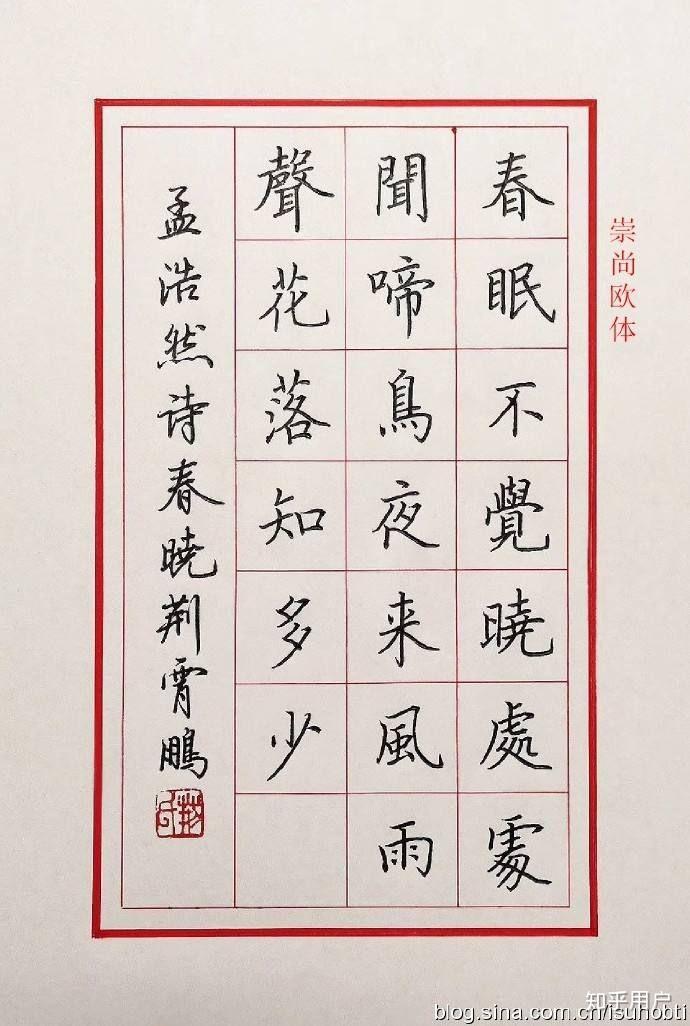 崇尚欧体
春眠不覺曉處處
聞啼鳥夜来風雨
聲花落知多少
孟浩然诗春曉荆霄鵬
知乎用户
blog.sina.com.cn/isuhobti